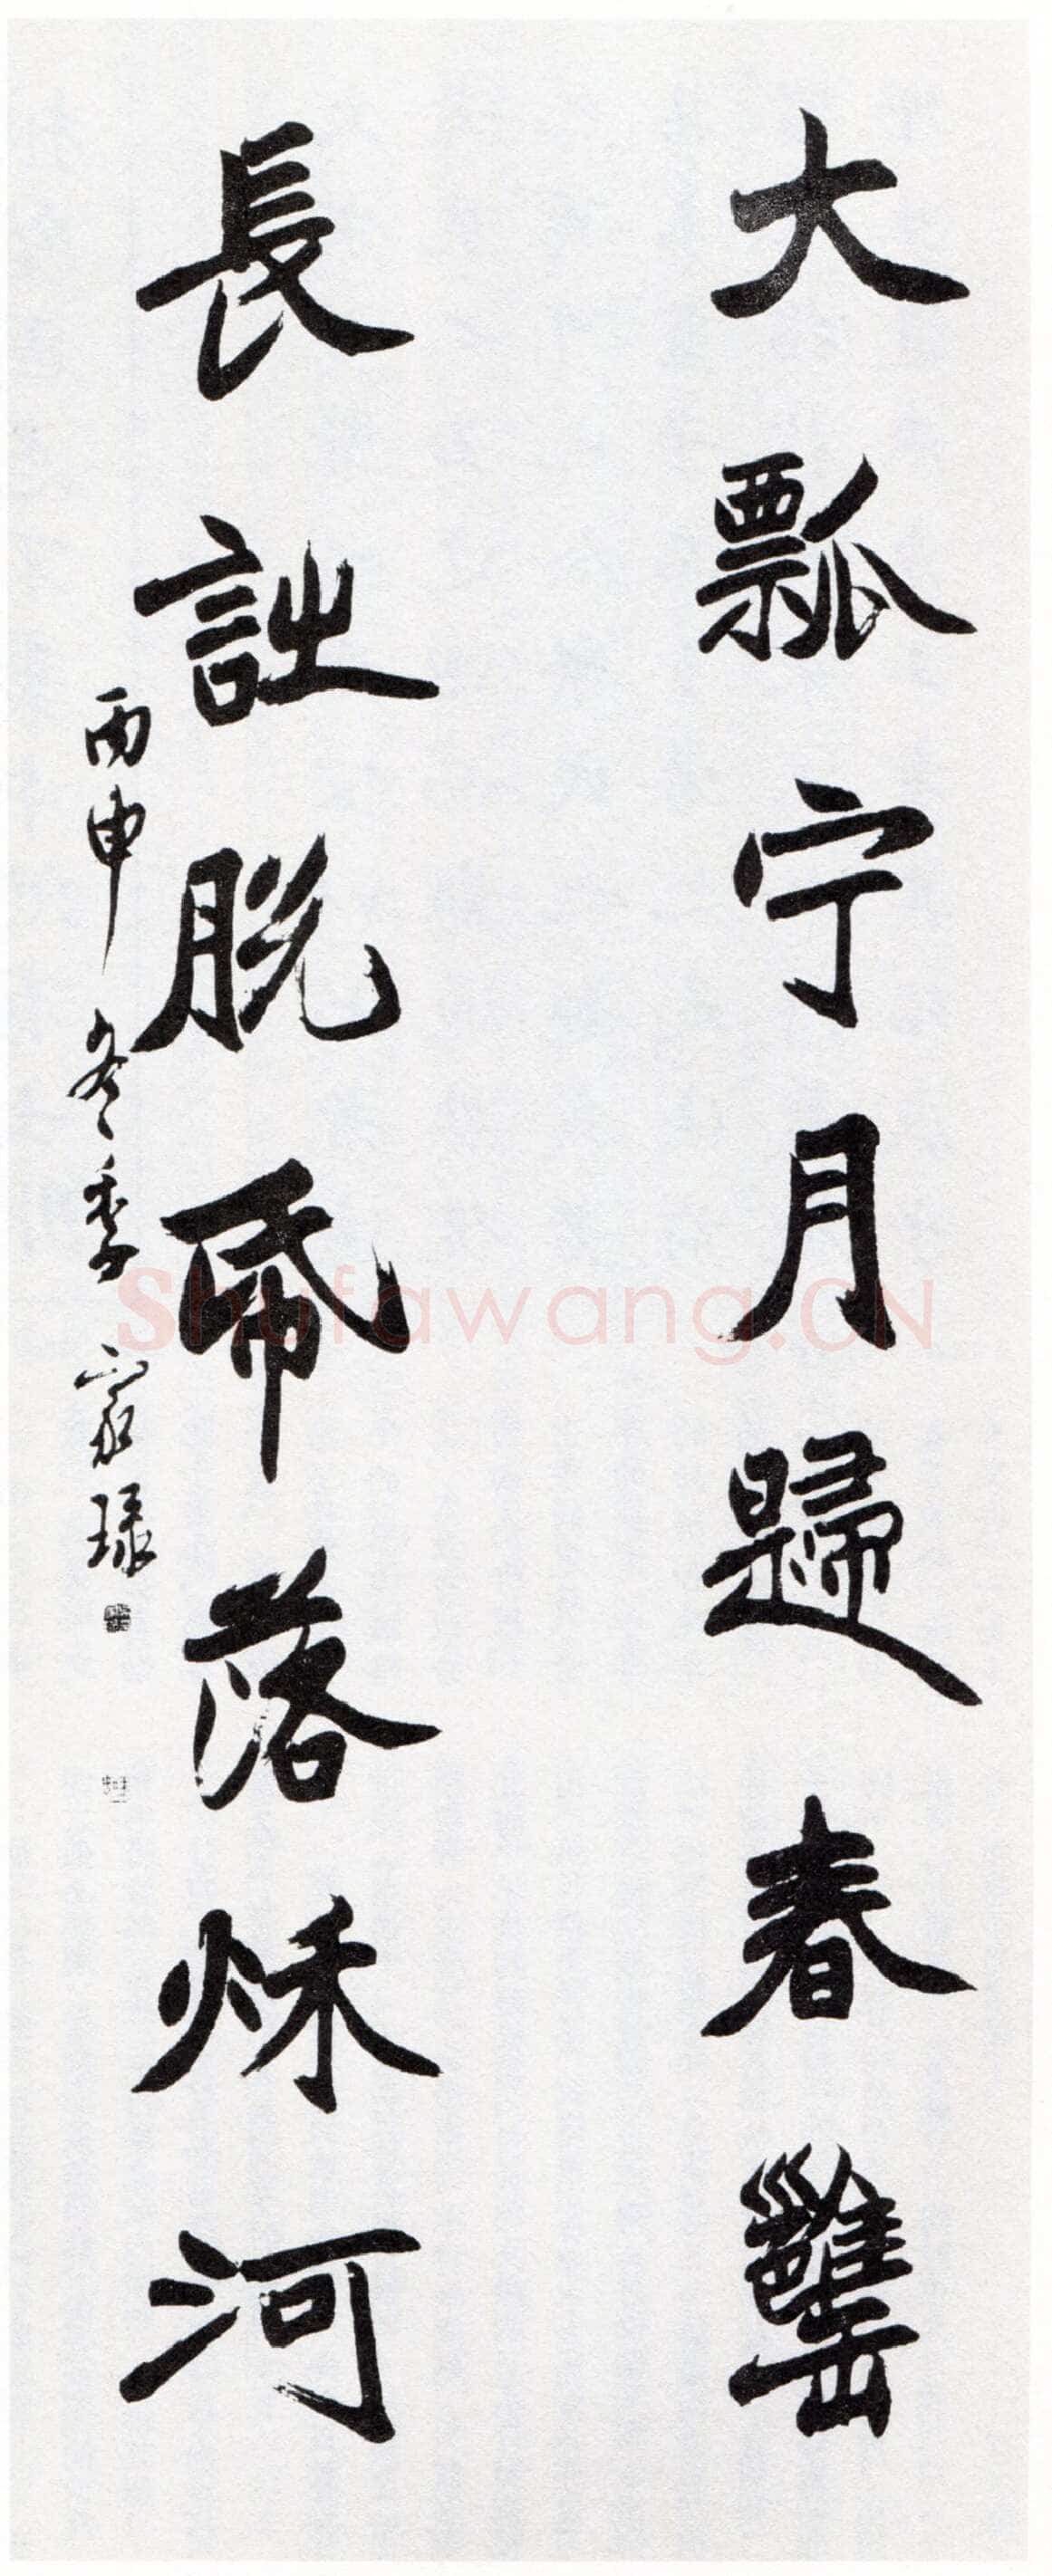 大瓢宁月歸春罋
長詘脫帋落秌河
丙申冬季 家琭
Shufawang.CN